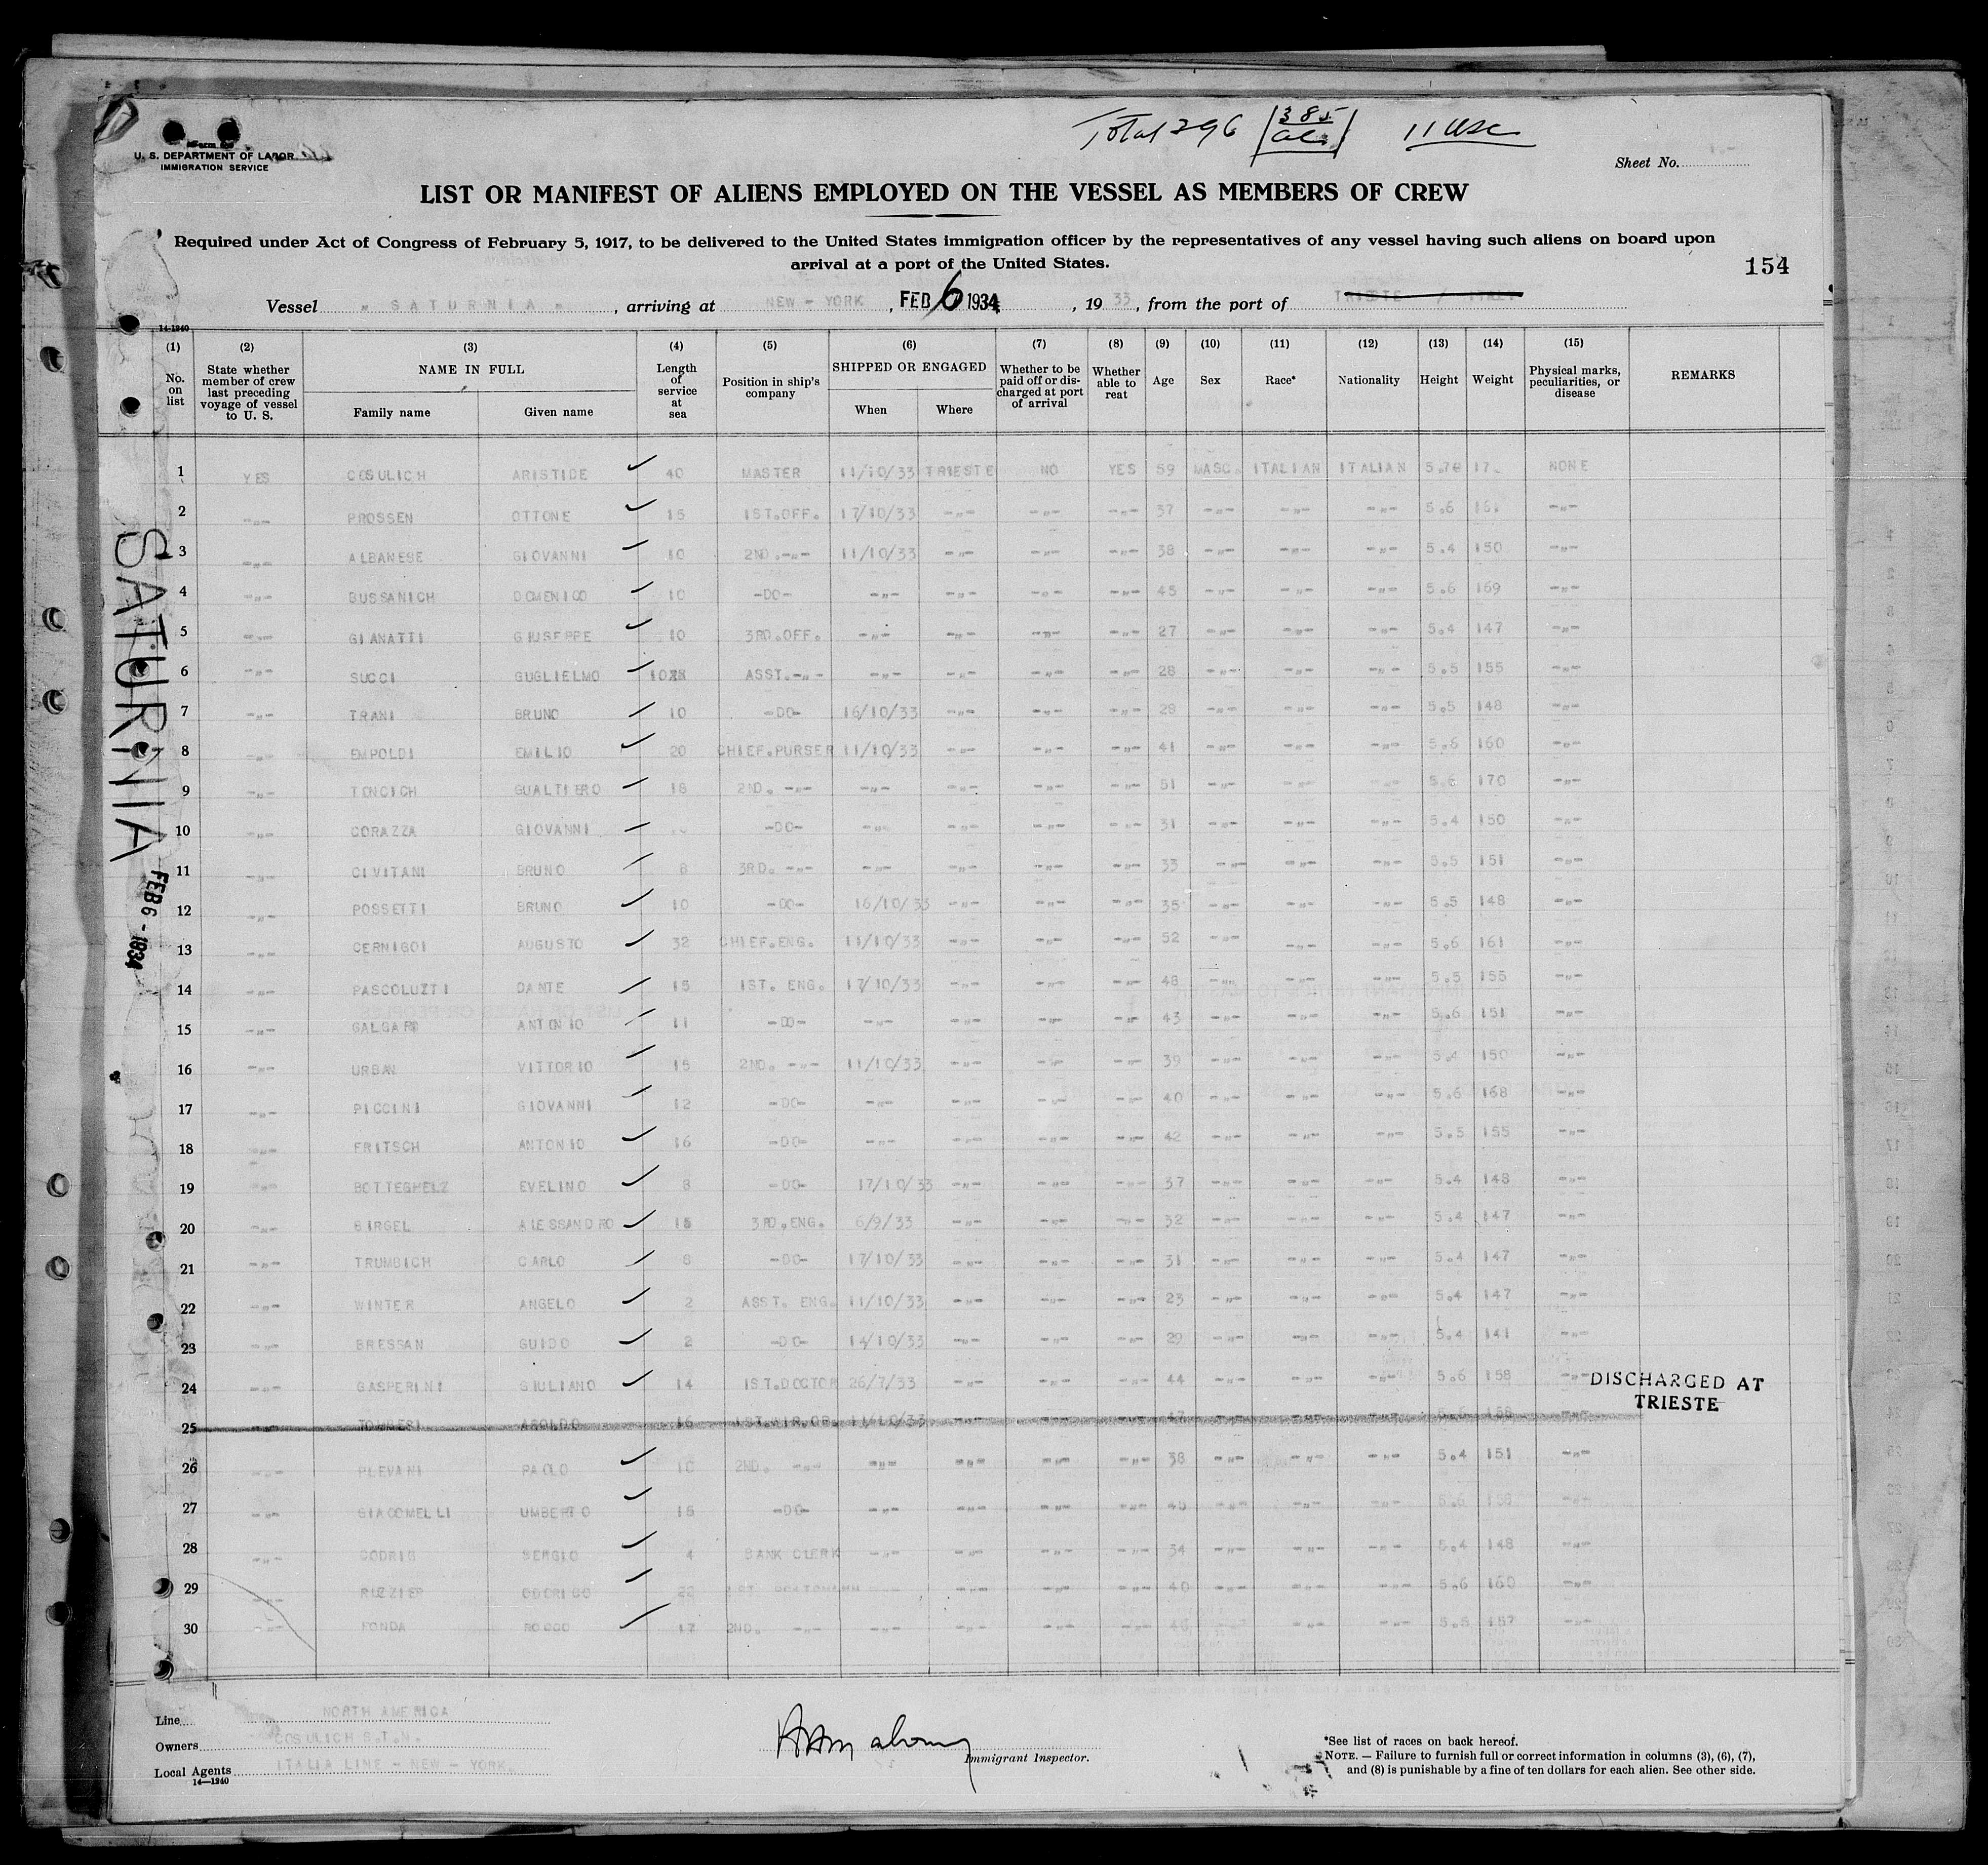 Total 396 385 Als 11 USC
U. S. DEPARTMENT OF LABOR
IMMIGRATION SERVICE
Sheet No.
LIST OR MANIFEST OF ALIENS EMPLOYED ON THE VESSEL AS MEMBERS OF CREW
Required under Act of Congress of February 5, 1917, to be delivered to the United States immigration officer by the representatives of any vessel having such aliens on board upon
arrival at a port of the United States.
154
Vessel "SATURNIA", arriving at NEW-YORK, FEB 6 1934, 1933, from the port of TRIESTE / ITALY
14-1240
(1) (2) (3) (4) (5) (6) (7) (8) (9) (10) (11) (12) (13) (14) (15)
No. on list
State whether member of crew last preceding voyage of vessel to U. S.
NAME IN FULL
Family name Given name
Length of service at sea
Position in ship's company
SHIPPED OR ENGAGED
When Where
Whether to be paid off or discharged at port of arrival
Whether able to reat
Age Sex Race* Nationality Height Weight
Physical marks, peculiarities, or disease
REMARKS
1 YES COSULICH ARISTIDE 40 MASTER 11/10/33 TRIESTE NO YES 59 MASC. ITALIAN ITALIAN NONE
2 -"- PROSSEN OTTONE 15 1ST.OFF. 17/10/33 -"- -"- -"- 37 -"- -"- -"- 5.6 161 -"-
3 -"- ALBANESE GIOVANNI 10 2ND.-"- 11/10/33 -"- -"- -"- 38 -"- -"- -"- 5.4 150 -"-
4 -"- BUSSANICH DOMENICO 10 -DO- -"- -"- -"- -"- 45 -"- -"- -"- 5.6 169 -"-
5 -"- GIANATTI GIUSEPPE 10 3RD.OFF. -"- -"- -"- -"- 27 -"- -"- -"- 5.4 147 -"-
6 -"- SUCCI GUGLIELMO ASST.-"- -"- -"- -"- -"- 28 -"- -"- -"- 5.5 155 -"-
7 -"- TRANI BRUNO 10 -DO- 16/10/33 -"- -"- -"- 28 -"- -"- -"- 5.5 148 -"-
8 -"- EMPOLDI EMILIO 20 CHIEF.PURSER 11/10/33 -"- -"- -"- 41 -"- -"- -"- 5.6 160 -"-
9 -"- TONCICH GUALTIERO 18 2ND. -"- -"- -"- -"- -"- 51 -"- -"- -"- 5.6 170 -"-
10 -"- CORAZZA GIOVANNI -DO- -"- -"- -"- -"- 31 -"- -"- -"- 5.4 150 -"-
11 -"- CIVITANI BRUNO 8 3RD. -"- -"- -"- -"- -"- 33 -"- -"- -"- 5.5 151 -"-
12 -"- POSSETTI BRUNO 10 -DO- 16/10/33 -"- -"- -"- 35 -"- -"- -"- 5.5 148 -"-
13 -"- CERNIGOI AUGUSTO 32 CHIEF.ENG. 11/10/33 -"- -"- -"- 52 -"- -"- -"- 5.6 161 -"-
14 -"- PASCOLUTTI DANTE 15 1ST. ENG. 17/10/33 -"- -"- -"- 48 -"- -"- -"- 5.5 155 -"-
15 -"- ANTONIO 11 -DO- -"- -"- -"- -"- 43 -"- -"- -"- 5.6 151 -"-
16 -"- URBAN VITTORIO 15 2ND. -"- 11/10/33 -"- -"- -"- 39 -"- -"- -"- 5.4 150 -"-
17 -"- PICCINI GIOVANNI 12 -DO- -"- -"- -"- -"- 40 -"- -"- -"- 5.6 168 -"-
18 -"- FRITSCH ANTONIO 16 -DO- -"- -"- -"- -"- 42 -"- -"- -"- 5.5 155 -"-
19 -"- BOTTEGHELZ EVELINO 8 -DO- 17/10/33 -"- -"- -"- 37 -"- -"- -"- 5.4 148 -"-
20 -"- ALESSANDRO 15 3RD.ENG. 6/9/33 -"- -"- -"- 32 -"- -"- -"- 5.4 147 -"-
21 -"- TRUMBICH CARLO 8 -DO- 17/10/33 -"- -"- -"- 31 -"- -"- -"- 5.4 147 -"-
22 -"- WINTER ANGELO 2 ASST. ENG. 11/10/33 -"- -"- -"- 23 -"- -"- -"- 5.4 147 -"-
23 -"- BRESSAN GUIDO 2 -DO- 14/10/33 -"- -"- -"- 29 -"- -"- -"- 5.4 141 -"-
24 -"- GASPERINI GIULIANO 14 1ST.DOCTOR 26/7/33 -"- -"- -"- 44 -"- -"- -"- 5.6 158 -"-
DISCHARGED AT
TRIESTE
25 -"- 16 11/10/33 -"- -"- -"- 47 -"- -"- -"-
26 -"- PLEVANI PAOLO 10 2ND. -"- -"- -"- -"- -"- 38 -"- -"- -"- 5.4 151 -"-
27 -"- GIACOMELLI UMBERTO 16 -DO- -"- -"- -"- -"- 40 -"- -"- -"- 5.6 158 -"-
28 -"- SERGIO 4 BANK CLERK -"- -"- -"- -"- 34 -"- -"- -"- 5.4 148 -"-
29 -"- RUZZIER ODERIGO 22 -"- -"- -"- 40 -"- -"- -"- 5.6 160 -"-
30 -"- FONDA ROCCO 17 2ND. -"- -"- -"- -"- -"- -"- -"- -"- 5.5 157 -"-
SATURNIA
FEB 6 - 1934
Line NORTH AMERICA
Owners COSULICH S.T.N.
Local Agents ITALIA LINE - NEW - YORK.
14—1240
Immigrant Inspector.
*See list of races on back hereof.
NOTE. — Failure to furnish full or correct information in columns (3), (6), (7),
and (8) is punishable by a fine of ten dollars for each alien. See other side.